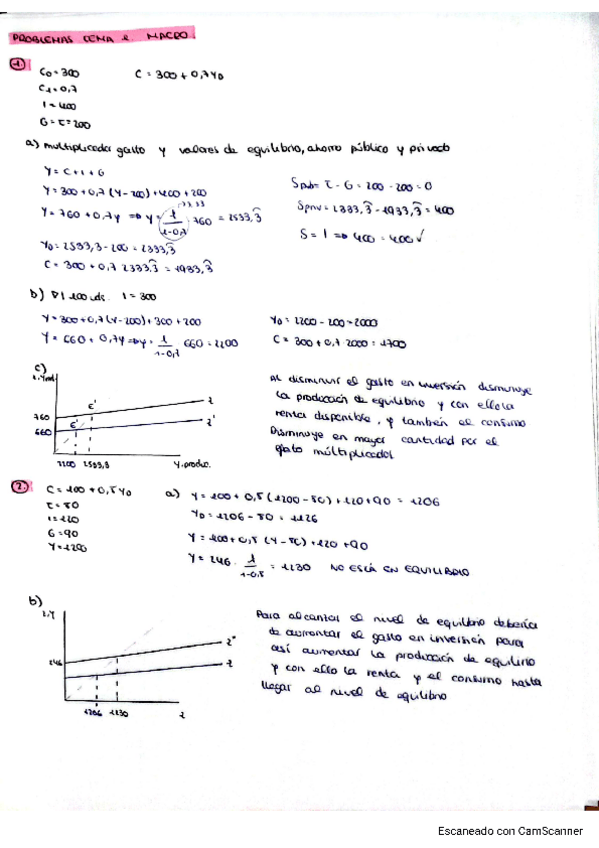 PROBLEMAS TEMA 2. MACRO.
1.
C0 = 300 C = 300 + 0,7YD
C1 = 0,7
I = 400
G = T = 200
a) multiplicador gasto y valores de equilibrio, ahorro público y privado
Y = C + I + G
Y = 300 + 0,7 (Y - 200) + 400 + 200
Y = 760 + 0,7Y => Y = 1/1-0,7 · 760 = 2533,3̂
YD = 2533,3 - 200 = 2333,3̂
C = 300 + 0,7 2333,3̂ = 1933,3̂
Spub = T - G = 200 - 200 = 0
Spriv = 2333,3̂ - 1933,3̂ = 400
S = I => 400 = 400 ✓
b) ∇I 100 uds. I = 300
Y = 300 + 0,7 (Y - 200) + 300 + 200
Y = 660 + 0,7Y => Y = 1/1-0,7 660 = 2200
YD = 2200 - 200 = 2000
C = 300 + 0,7 2000 = 1700
c)
Z
Z'
E'
E'
760
660
2200 2533,3 Y. produc.
Al disminuir el gasto en inversión disminuye
la producción de equilibrio y con ello la
renta disponible, y también el consumo
Disminuye en mayor cantidad por el
efecto múltiplicador
2.
C = 100 + 0,5YD
T = 80
I = 120
G = 90
Y = 1200
a) Y = 100 + 0,5 (1200 - 80) + 120 + 90 = 1206
YD = 1206 - 80 = 1126
Y = 100 + 0,5 (Y - 80) + 120 + 90
Y = 246 · 1/1-0,8 = 1230 NO ESTÁ EN EQUILIBRIO
b)
Z, Y
Z"
Z
246
1206 1230 Z
Para alcanzar el nivel de equilibrio debería
de aumentar el gasto en inversión para
así aumentar la producción de equilirio
y con ello la renta y el consumo hasta
llegar al nivel de equilibrio
Escaneado con CamScanner